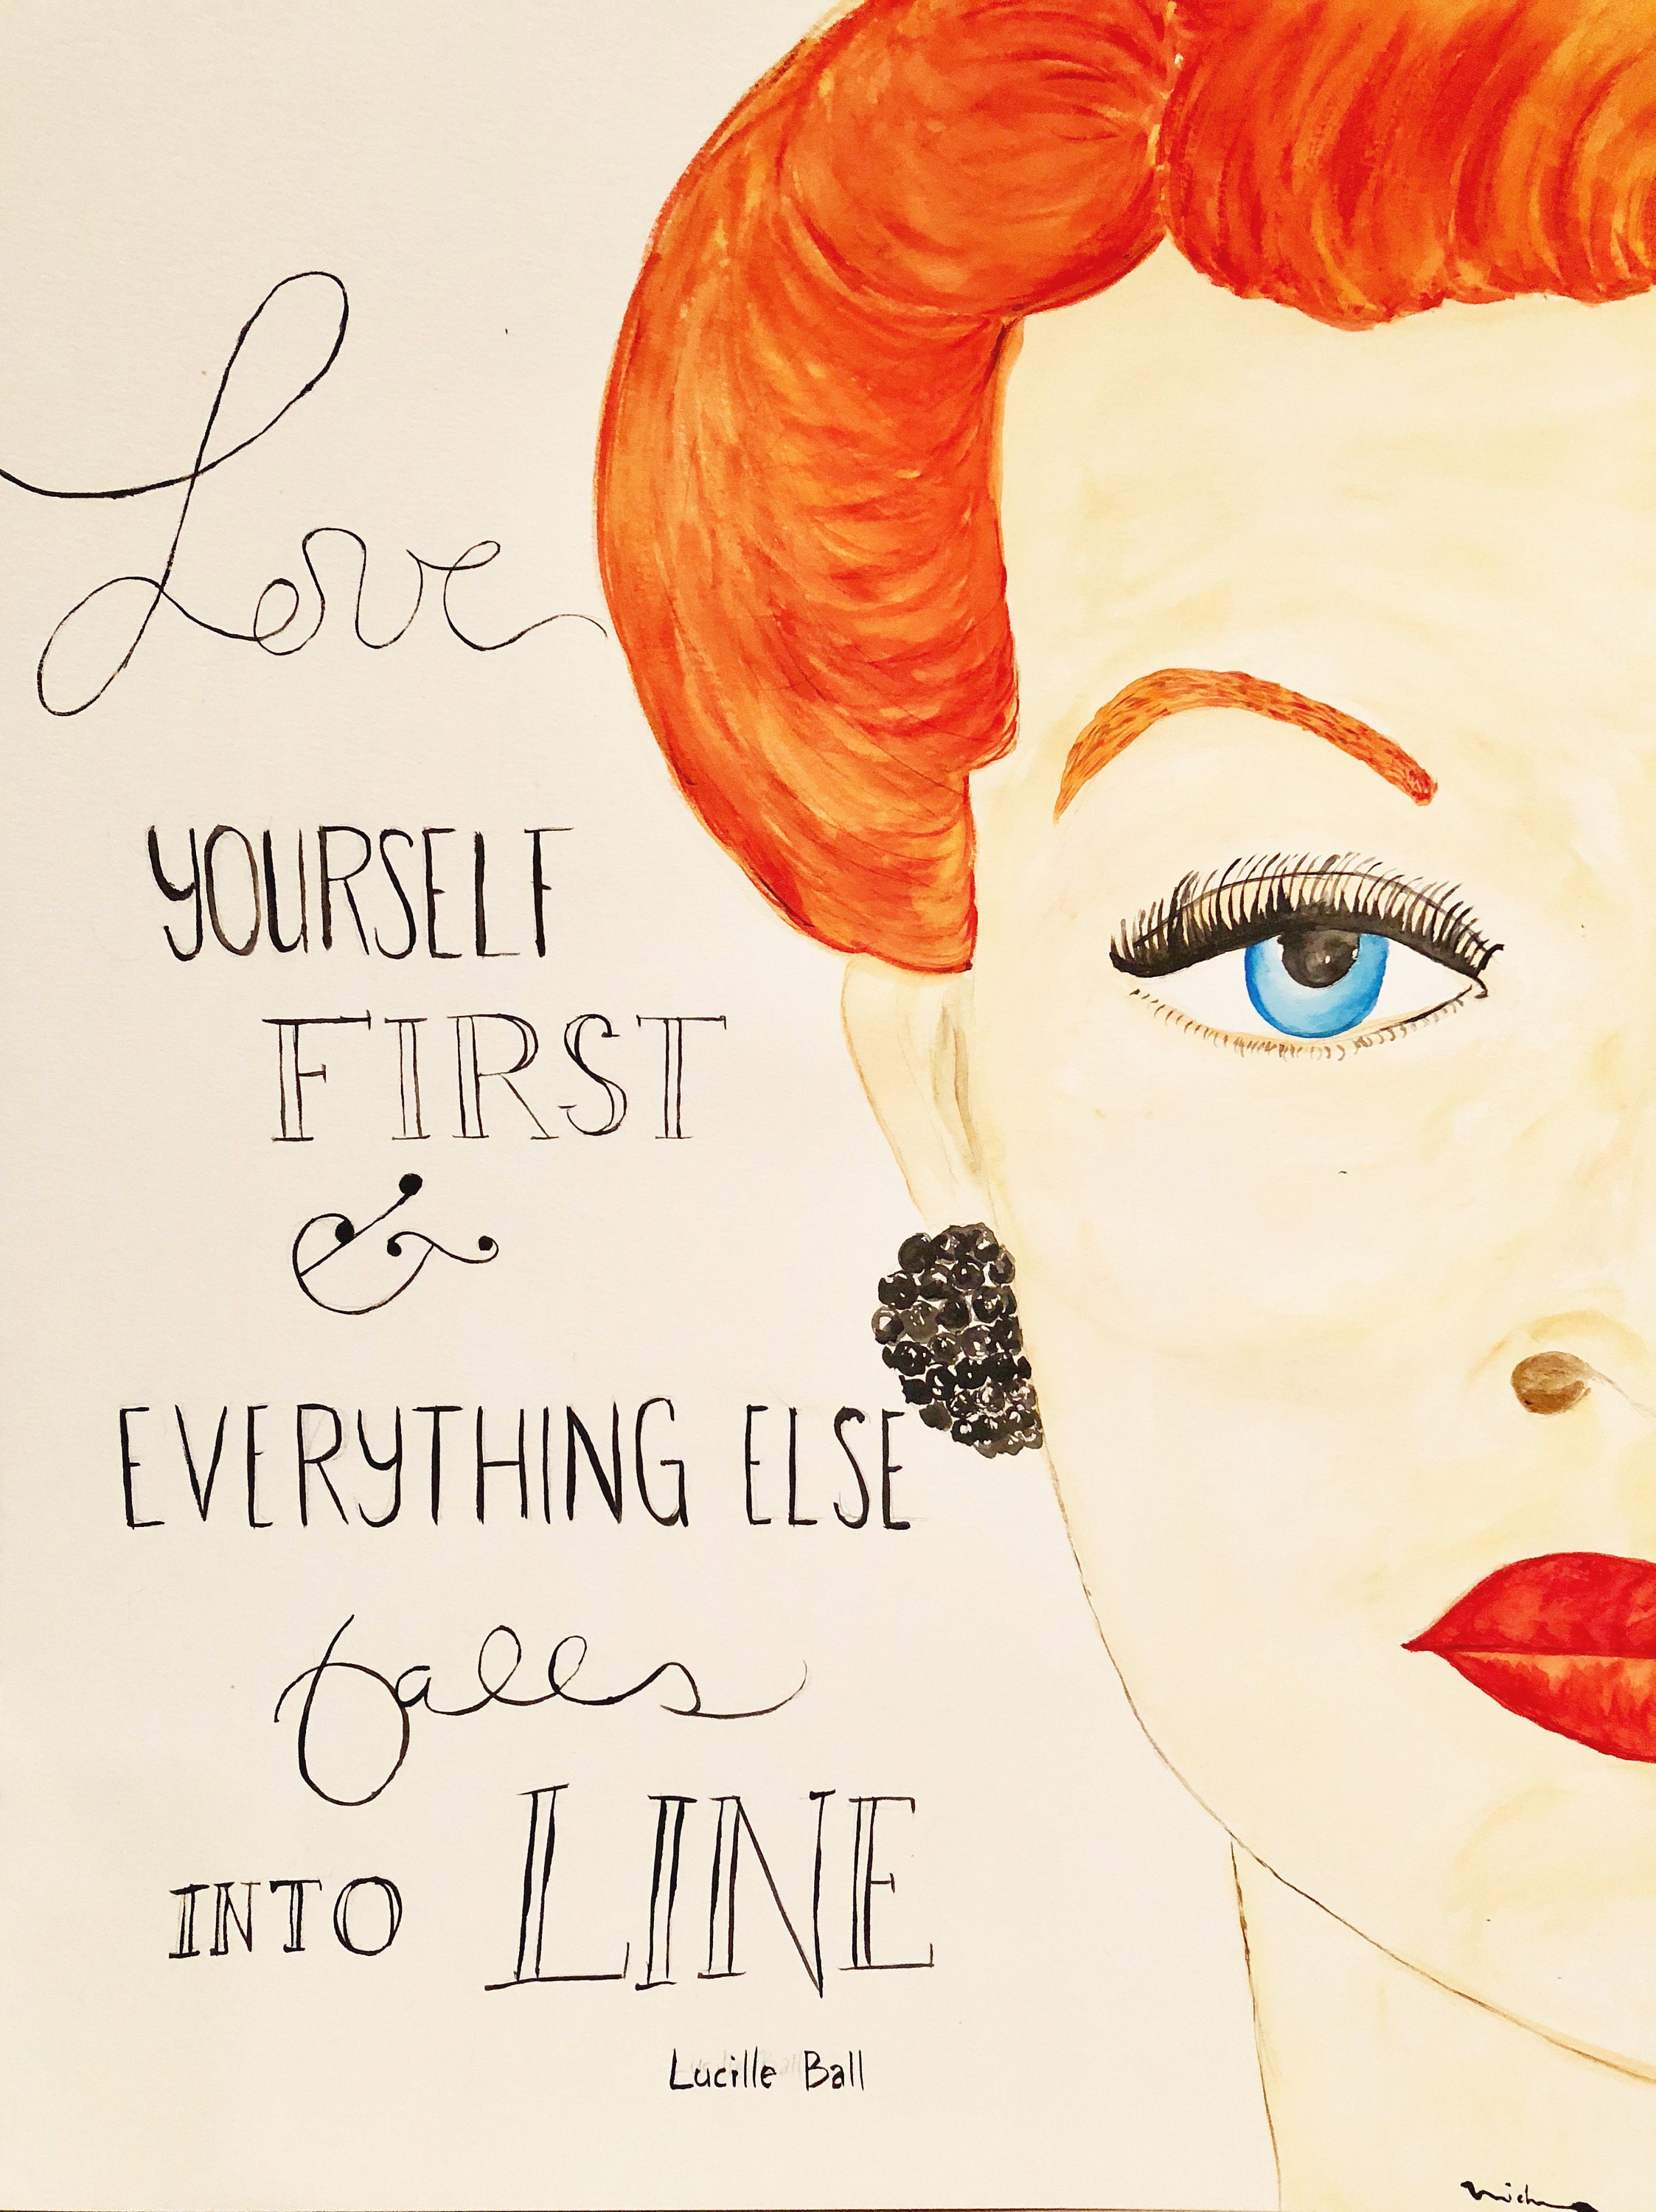 Love
YOURSELF
FIRST
&
EVERYTHING ELSE
falls
INTO LINE
Lucille Ball